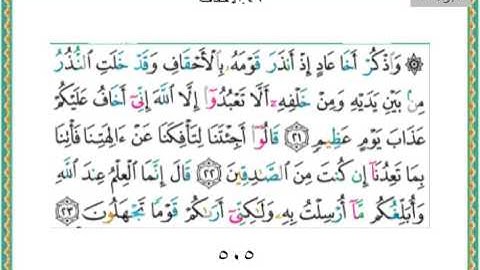 ۞ وَٱذْكُرْ أَخَا عَادٍ إِذْ أَنذَرَ قَوْمَهُۥ بِٱلْأَحْقَافِ وَقَدْ خَلَتِ ٱلنُّذُرُ
مِنۢ بَيْنِ يَدَيْهِ وَمِنْ خَلْفِهِۦٓ أَلَّا تَعْبُدُوٓا۟ إِلَّا ٱللَّهَ إِنِّىٓ أَخَافُ عَلَيْكُمْ
عَذَابَ يَوْمٍ عَظِيمٍ ٢١ قَالُوٓا۟ أَجِئْتَنَا لِتَأْفِكَنَا عَنْ ءَالِهَتِنَا فَأْتِنَا
بِمَا تَعِدُنَآ إِن كُنتَ مِنَ ٱلصَّـٰدِقِينَ ٢٢ قَالَ إِنَّمَا ٱلْعِلْمُ عِندَ ٱللَّهِ
وَأُبَلِّغُكُم مَّآ أُرْسِلْتُ بِهِۦ وَلَـٰكِنِّىٓ أَرَىٰكُمْ قَوْمًا تَجْهَلُونَ ٢٣
٥٠٥